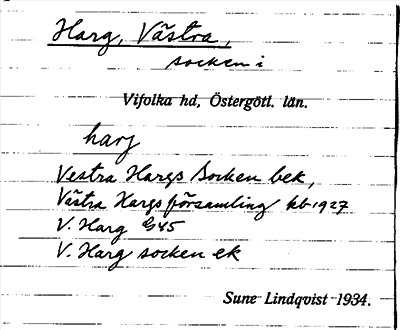 Harg, Västra,
socken i
Vifolka hd, Östergötl. län.
harj
Vestra Hargs Socken bek,
Västra Hargs församling kb 1927
V. Harg G45
V. Harg socken ek
Sune Lindqvist 1934.